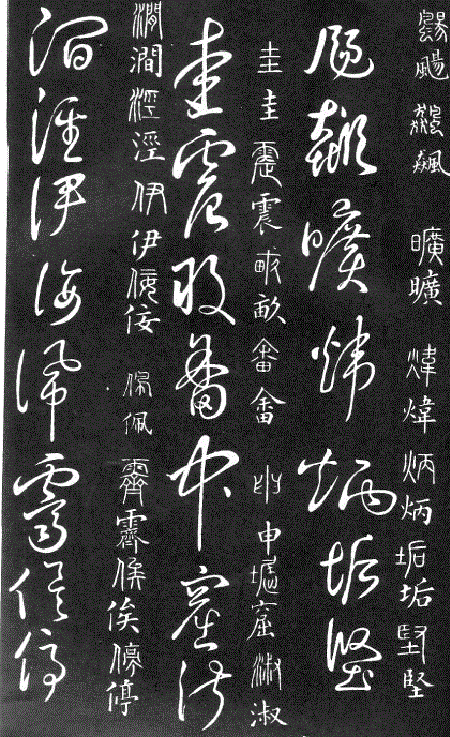 颺颺飆飆曠曠煒煒炳炳垢垢堅堅
颺飆曠煒炳垢堅
圭圭震震畝畝畬畬申申窟窟淑淑
圭震畝畬申窟淑
澗澗涇涇伊伊佩佩霽霽俟俟停停
澗涇伊佩霽俟停